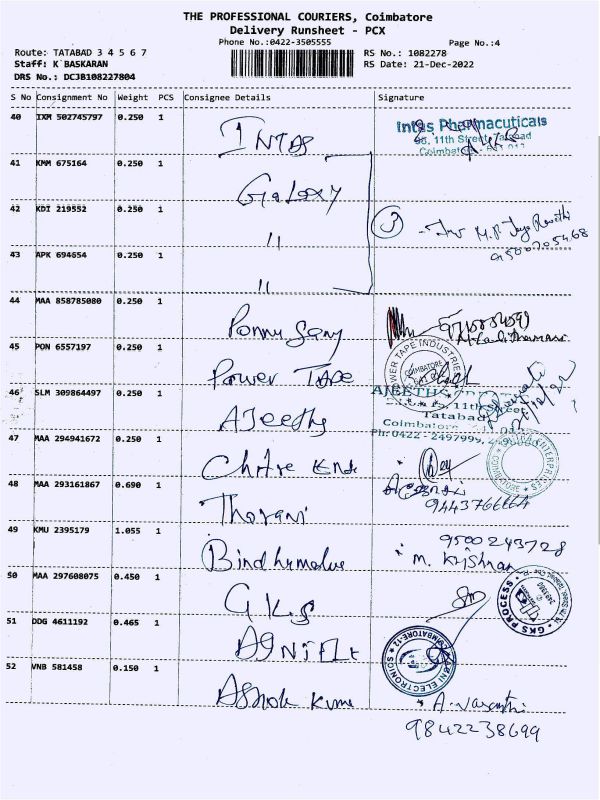 THE PROFESSIONAL COURIERS, Coimbatore
Delivery Runsheet - PCX
Phone No.:0422-3505555
Page No.:4
Route: TATABAD 3 4 5 6 7
RS No.: 1082278
Staff: K BASKARAN
RS Date: 21-Dec-2022
DRS No.: DCJB108227804
S No Consignment No Weight PCS Consignee Details Signature
40 IXM 502745797 0.250 1
INTAS
Intas Pharmacuticals
11th Street
Coimbatore
41 KMM 675164 0.250 1
Galaxy
42 KDI 219552 0.250 1
"
3
43 APK 694654 0.250 1
"
44 MAA 858785080 0.250 1
Ponnu Samy
45 PON 6557197 0.250 1
Power TAPE
POWER TAPE INDUSTRIES
COIMBATORE
46 SLM 309864497 0.250 1
AJeeths
11th Street,
Tatabad
Coimbatore
Ph:0422 - 2497999,
47 MAA 294941672 0.250 1
Chitre
ENTERPRISES
48 MAA 293161867 0.690 1
Tharani
9443766664
49 KMU 2395179 1.055 1
9500243728
M. Krishnan
50 MAA 297608075 0.450 1
GKS
GKS PROCESS
51 DDG 4611192 0.465 1
AGNI
AGNI ELECTRONICS
COIMBATORE-12
52 VNB 581458 0.150 1
Ashok Kume
A. Vasanthi
9842238699